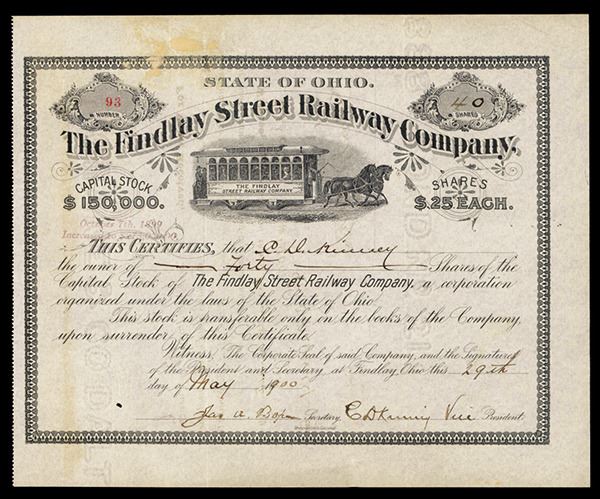 STATE OF OHIO.
93
NUMBER
40
SHARES
The Findlay Street Railway Company.
THE FINDLAY
STREET RAILWAY COMPANY.
CAPITAL STOCK
$150,000.
SHARES
$.25 EACH.
October 7th, 1899
Increased to
THIS CERTIFIES, that C. D. Kinney
the owner of Forty Shares of the
Capital Stock of The Findlay Street Railway Company. a corporation
organized under the laws of the State of Ohio.
This stock is transferable only on the books of the Company,
upon surrender of this Certificate.
Witness, The Corporate Seal of said Company, and the Signatures
of the President and Secretary, at Findlay, Ohio this 29th
day of May 1900
Jas A. Secretary. C D Kinney Vice President.